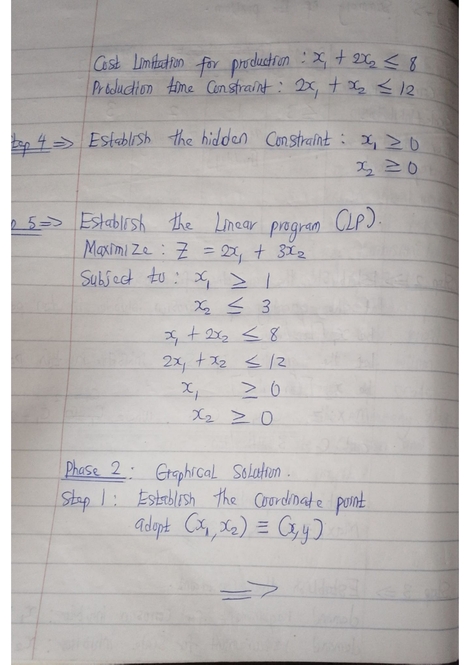 Cost Limitation for production : x₁ + 2x₂ ≤ 8
Production time Constraint : 2x₁ + x₂ ≤ 12
tep 4 ⇒ Establish the hidden Constraint : x₁ ≥ 0
x₂ ≥ 0
5 ⇒ Establish the Linear program (LP).
Maximize : Z = 2x₁ + 3x₂
Subject to : x₁ ≥ 1
x₂ ≤ 3
x₁ + 2x₂ ≤ 8
2x₁ + x₂ ≤ 12
x₁ ≥ 0
x₂ ≥ 0
Phase 2 : Graphical Solution.
Step 1 : Establish the Coordinate point
adopt (x₁, x₂) ≡ (x, y)
⇒